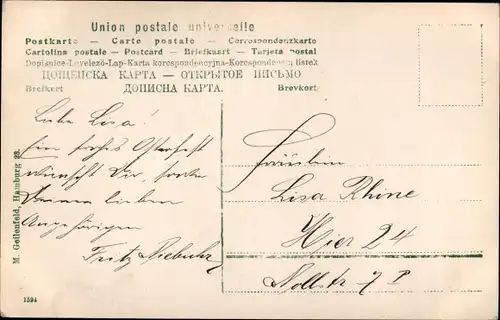 Union postale universelle
Postkarte — Carte postale — Correspondenzkarte
Cartolina postale — Postcard — Briefkaart — Tarjeta postal
Dopisnice-Levelező-Lap-Karta korespondencyjna-Korespondenční listek
ДОПИСНА КАРТА — ОТКРЫТОЕ ПИСЬМО
Brefkort ДОПИСНА КАРТА. Brevkort
Liebe Lisa!
Ein frohes Osterfest
wünscht Dir, sowie
Deinen lieben
Angehörigen
Fritz Niebuhr
Fräulein
Lisa Rhine
Hier 24
7 P
M. Geilenfeld, Hamburg 23.
1594